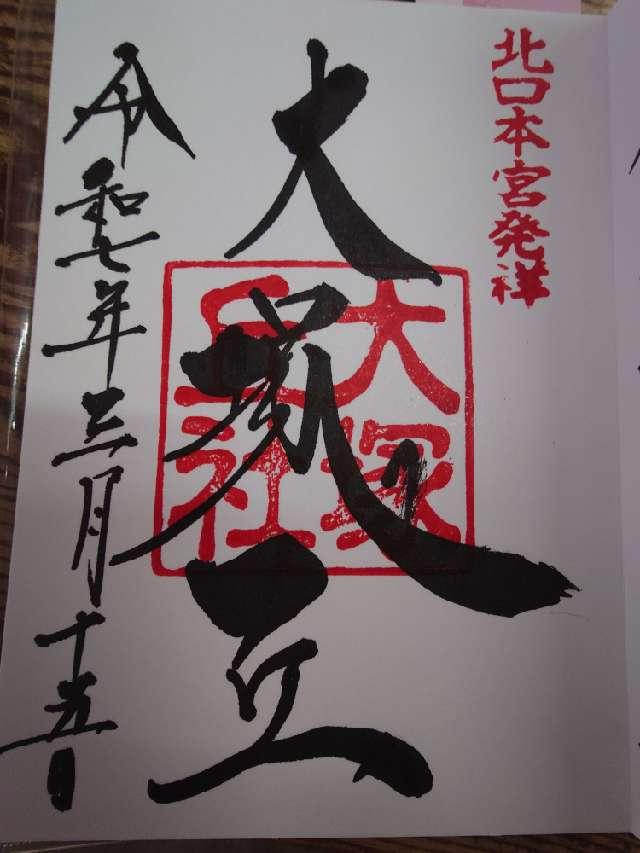 北口本宮発祥
大塚丘
大塚
丘社
令和七年三月十五日